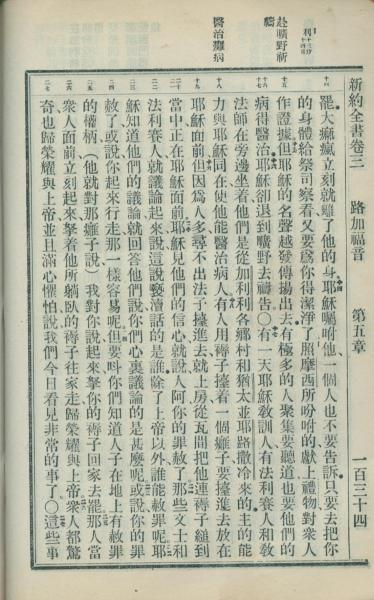 新約全書卷三 路加福音 第五章 一百三十四
罷大痲瘋立刻就離了他的身耶穌囑咐他一個人也不要告訴只要去把你
的身體給祭司察看又要爲你得潔淨了照摩西所吩咐的獻上禮物對衆人
作證據但耶穌的名聲越發傳揚出去有極多的人聚集要聽道也要他們的
病得醫治耶穌卻退到曠野去禱告〇有一天耶穌教訓人有法利賽人和教
法師在旁邊坐着他們是從加利利各鄉村和猶太並耶路撒冷來的主的能
力與耶穌同在使他能醫治病人有人用褥子擡着一個癱子要擡進去放在
耶穌面前但因爲人多尋不出法子擡進去就上房從瓦間把他連褥子縋到
當中正在耶穌面前耶穌見他們的信心就說人阿你的罪赦了那些文士和
法利賽人就議論起來說這說褻瀆話的是誰除了上帝以外誰能赦罪呢耶
穌知道他們的議論就回答他們說你們心裏議論的是甚麼呢或說你的罪
赦了或說你起來行走那一樣容易呢但要呌你們知道人子在地上有赦罪
的權柄（他就對那癱子說）我對你說起來拏你的褥子回家去罷那人當
衆人面前立刻起來拏着他所躺臥的褥子往家走歸榮耀與上帝衆人都驚
奇也歸榮耀與上帝並且滿心懼怕說我們今日看見非常的事了〇這些事
赴曠野祈
禱
醫治癱病